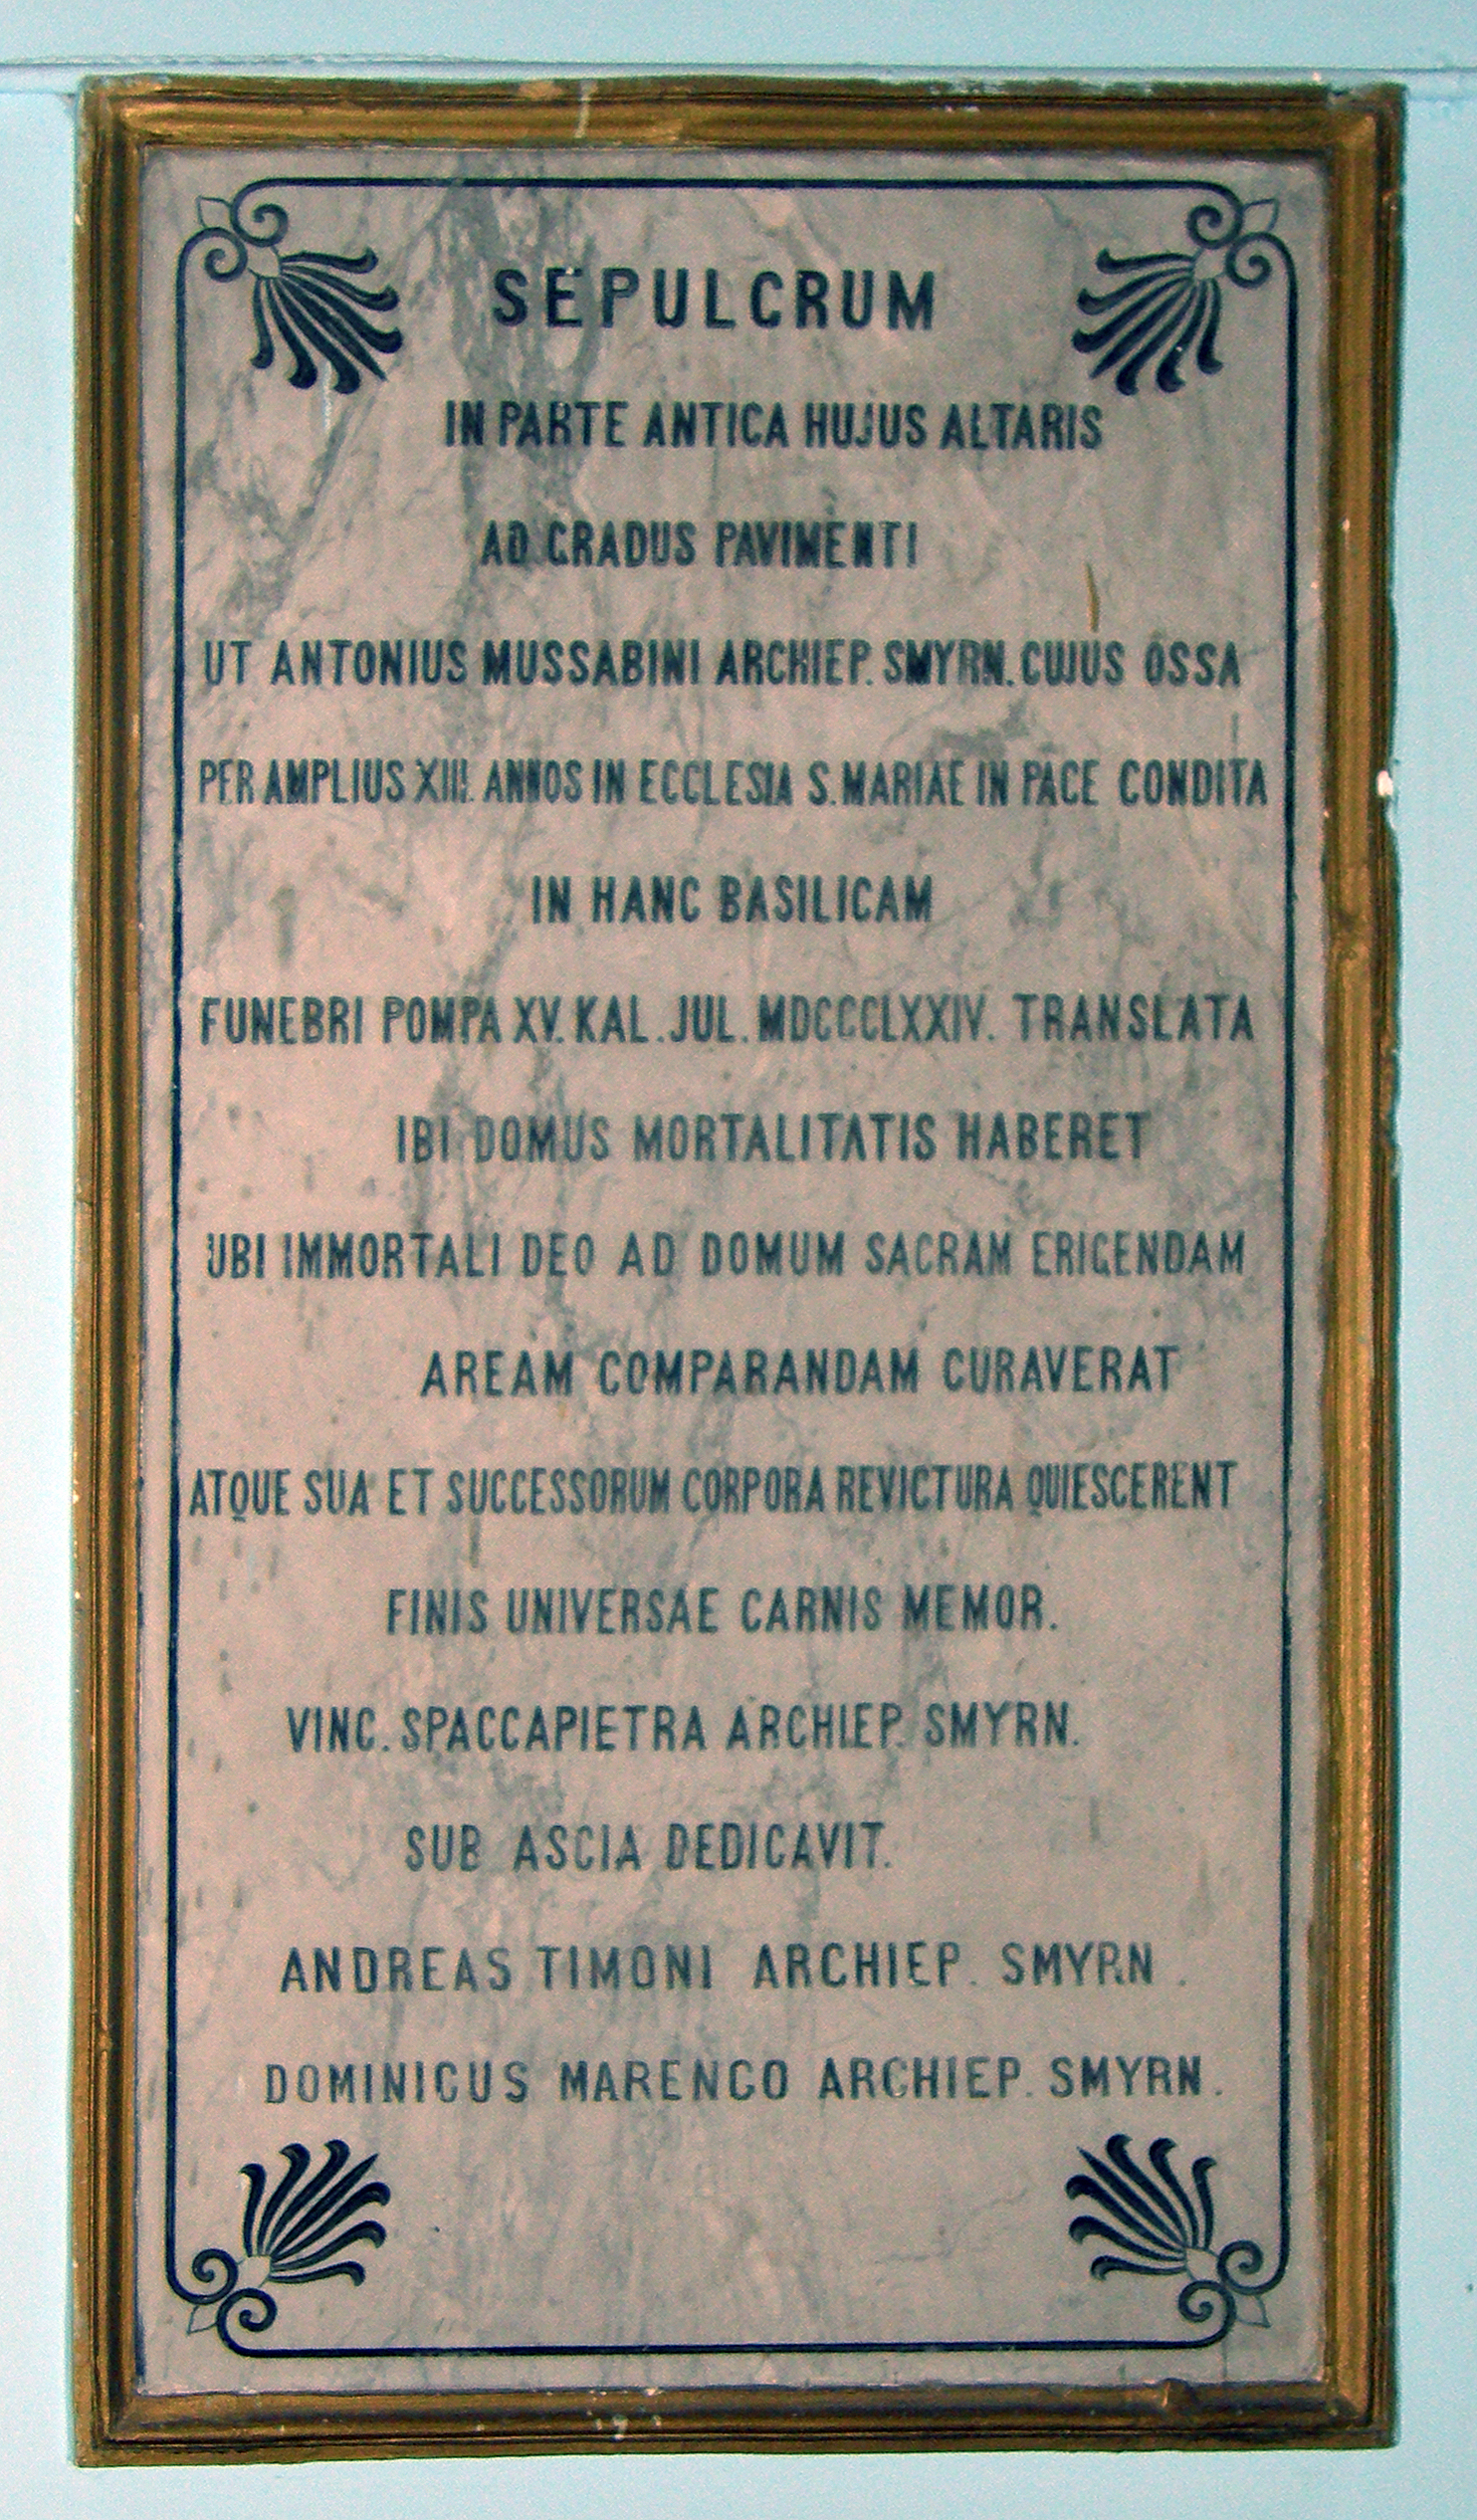 SEPULCRUM
IN PARTE ANTICA HUJUS ALTARIS
AD GRADUS PAVIMENTI
UT ANTONIUS MUSSABINI ARCHIEP. SMYRN. CUJUS OSSA
PER AMPLIUS XIII ANNOS IN ECCLESIA S. MARIAE IN PACE CONDITA
IN HANC BASILICAM
FUNEBRI POMPA XV. KAL. JUL. MDCCCLXXIV. TRANSLATA
IBI DOMUS MORTALITATIS HABERET
UBI IMMORTALI DEO AD DOMUM SACRAM ERIGENDAM
AREAM COMPARANDAM CURAVERAT
ATQUE SUA ET SUCCESSORUM CORPORA REVICTURA QUIESCERENT
FINIS UNIVERSAE CARNIS MEMOR.
VINC. SPACCAPIETRA ARCHIEP. SMYRN.
SUB ASCIA DEDICAVIT.
ANDREAS TIMONI ARCHIEP. SMYRN.
DOMINICUS MARENGO ARCHIEP. SMYRN.